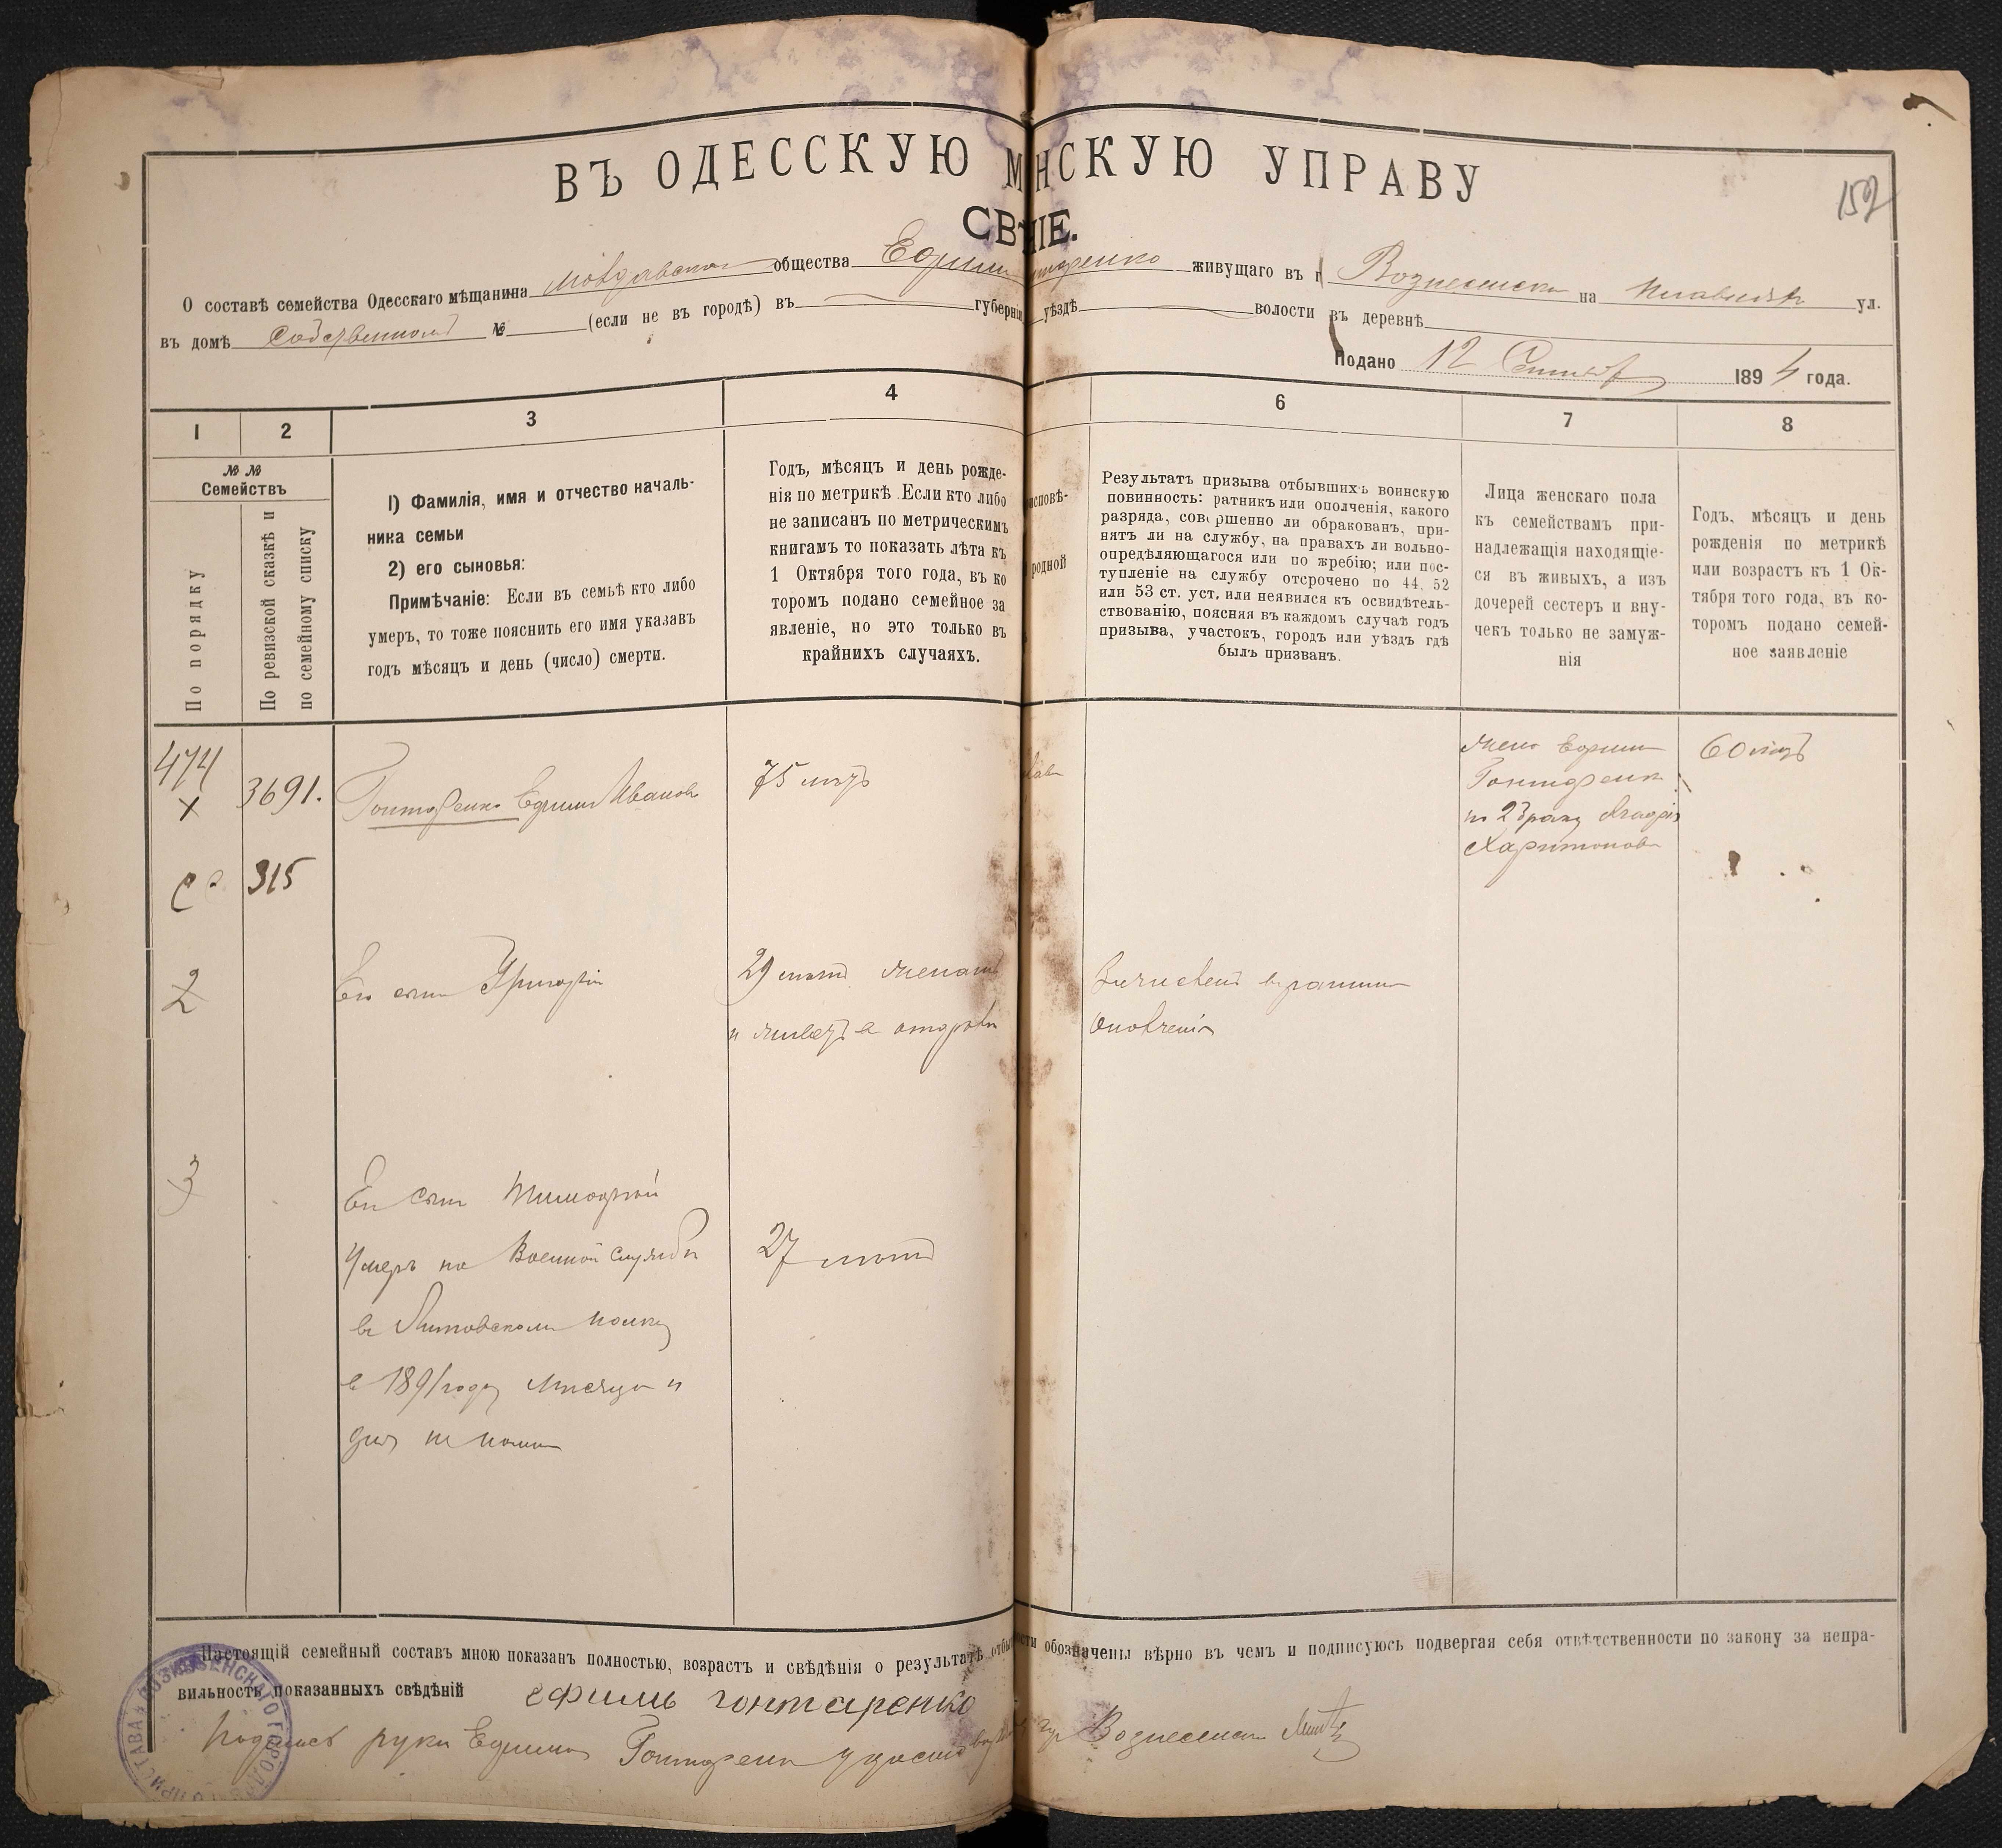 ВЪ ОДЕССКУЮ М НСКУЮ УПРАВУ
152
СВ НІЕ.
О составѣ семейства Одесскаго мѣщанина Молдавскаго общества Ефима нтаренко живущаго въ г Вознесенскѣ на ул.
въ домѣ Собственномъ № (если не въ городѣ) въ губерніи уѣздѣ волости въ деревнѣ
Подано 12 Сентября 1894 года.
1 2 3 4 6 7 8
№ № Семействъ
По порядку
По ревизской сказкѣ и по семейному списку
1) Фамилія, имя и отчество началь-
ника семьи
2) его сыновья:
Примѣчаніе: Если въ семьѣ кто либо
умеръ, то тоже пояснить его имя указавъ
годъ мѣсяцъ и день (число) смерти.
Годъ, мѣсяцъ и день рожде-
нія по метрикѣ. Если кто либо
не записанъ по метрическимъ
книгамъ то показать лѣта къ
1 Октября того года, въ ко
торомъ подано семейное за
явленіе, но это только въ
крайнихъ случаяхъ.
исповѣ-
родной
Результатъ призыва отбывшихъ воинскую
повинность: ратникъ или ополченія, какого
разряда, совершенно ли обракованъ, при-
нятъ ли на службу, на правахъ ли вольно-
опредѣляющагося или по жребію; или пос-
тупленіе на службу отсрочено по 44, 52
или 53 ст. уст. или неявился къ освидѣтель-
ствованію, поясняя въ каждомъ случаѣ годъ
призыва, участокъ, городъ или уѣздъ гдѣ
былъ призванъ.
Лица женскаго пола
къ семействамъ при-
надлежащія находящіе-
ся въ живыхъ, а изъ
дочерей сестеръ и вну-
чекъ только не замуж-
нія
Годъ, мѣсяцъ и день
рожденія по метрикѣ
или возрастъ къ 1 Ок-
тября того года, въ ко-
торомъ подано семей-
ное заявленіе
474
х
3691.
Гонтаренко Ефим Иванов
75 летъ
жена Ефима
Гонтаренк
по 2 браку
Харитонова
60 летъ
315
2
Его сын Григорій
29 летъ женатъ
и живетъ в
Зачислен в ратники
Ополченія
3
Его сын Тимофей
Умеръ на Военной Службѣ
в Литовском полку
в 1891 году Месяца и
дня не помн
27 летъ
Настоящій семейный составъ мною показанъ полностью, возрастъ и свѣдѣнія о результатѣ отбы сти обозначены вѣрно въ чемъ и подписуюсь подвергая себя отвѣтственности по закону за непра-
вильность показанныхъ свѣдѣній ефимъ гонтаренко
Подпись руки Ефима Гонтаренк Вознесенск
ВОЗНЕСЕНСКАГО ГОРОДСКОГО ПРИСТАВА